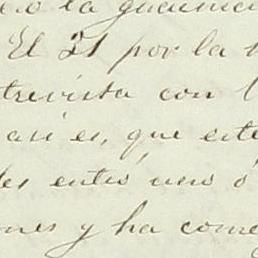 la
El 21 por la
trevista con
así es, que este
des entre uno ó
nes y ha come